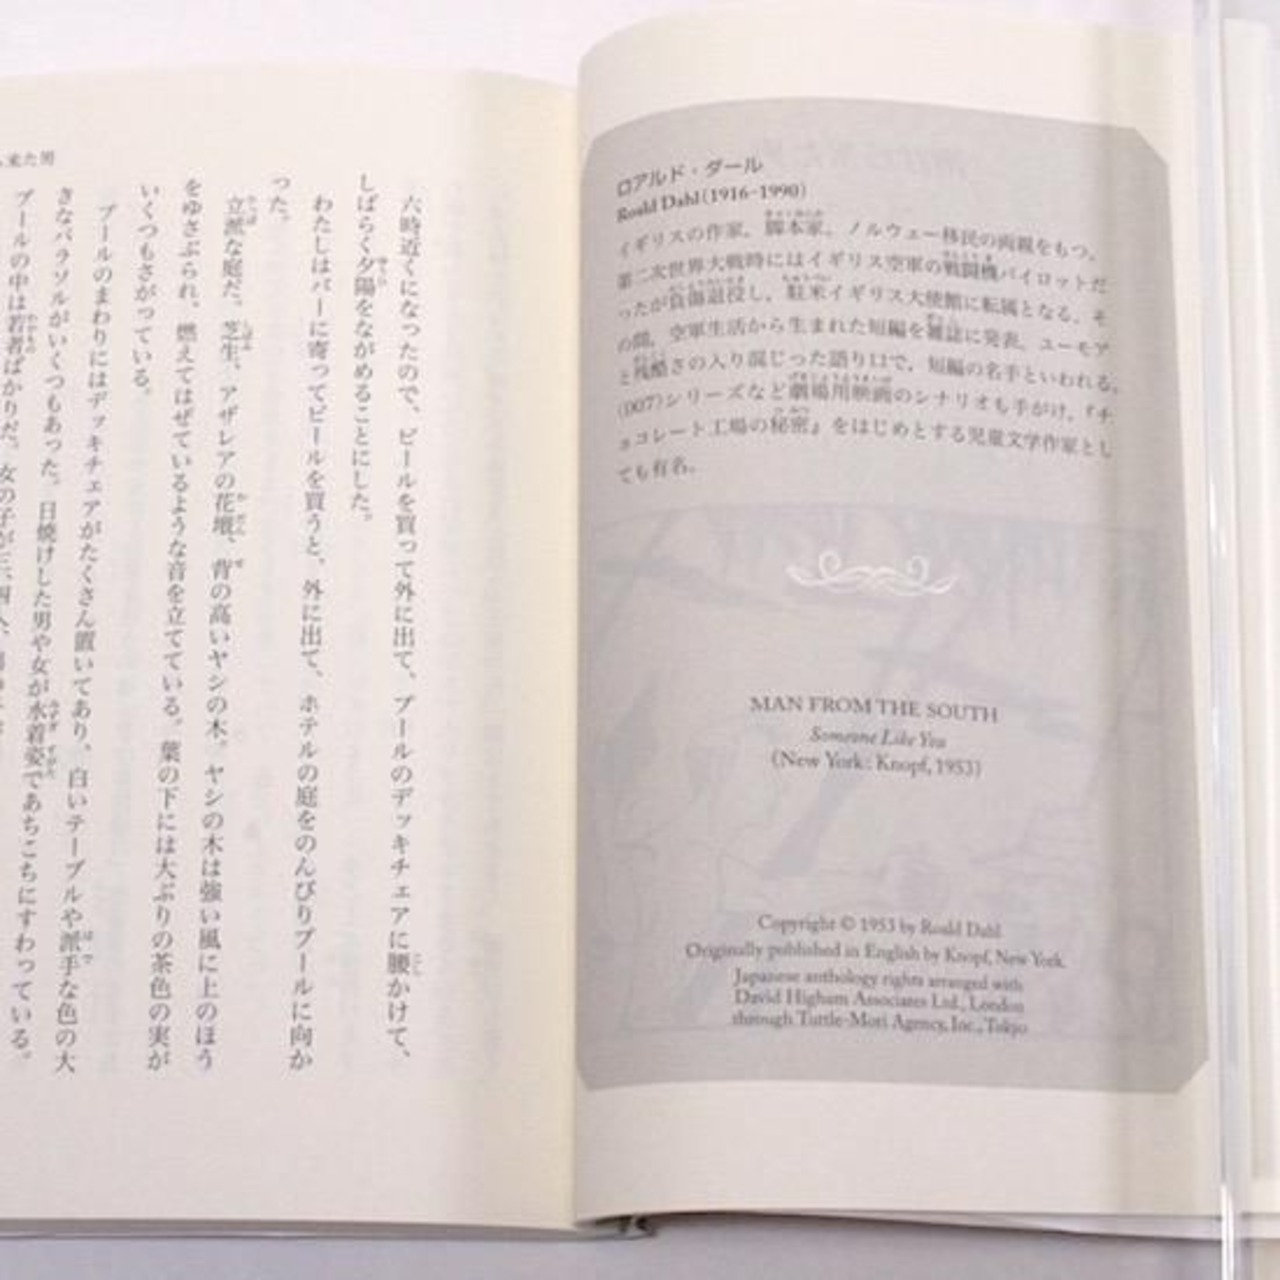 ロアルド・ダール
Roald Dahl(1916-1990)
イギリスの作家、脚本家。ノルウェー移民の両親をもつ。
第二次世界大戦時にはイギリス空軍の戦闘機パイロットだ
ったが負傷退役し、駐米イギリス大使館に転属となる。そ
の間、空軍生活から生まれた短編を雑誌に発表。ユーモア
と残酷さの入り混じった語り口で、短編の名手といわれる。
〈007〉シリーズなど劇場用映画のシナリオも手がけ、『チ
ョコレート工場の秘密』をはじめとする児童文学作家とし
ても有名。
MAN FROM THE SOUTH
Someone Like You
(New York: Knopf, 1953)
Copyright © 1953 by Roald Dahl
Originally published in English by Knopf, New York.
Japanese anthology rights arranged with
David Higham Associates Ltd., London
through Tuttle-Mori Agency, Inc., Tokyo
ら来た男
六時近くになったので、ビールを買って外に出て、プールのデッキチェアに腰かけて、
しばらく夕陽をながめることにした。
わたしはバーに寄ってビールを買うと、外に出て、ホテルの庭をのんびりプールに向か
った。
立派な庭だ。芝生、アザレアの花壇、背の高いヤシの木。ヤシの木は強い風に上のほう
をゆさぶられ、燃えてはぜているような音を立てている。葉の下には大ぶりの茶色の実が
いくつもさがっている。
プールのまわりにはデッキチェアがたくさん置いてあり、白いテーブルや派手な色の大
きなパラソルがいくつもあった。日焼けした男や女が水着姿であちこちにすわっている。
プールの中は若者ばかりだ。女の子が三、四人、